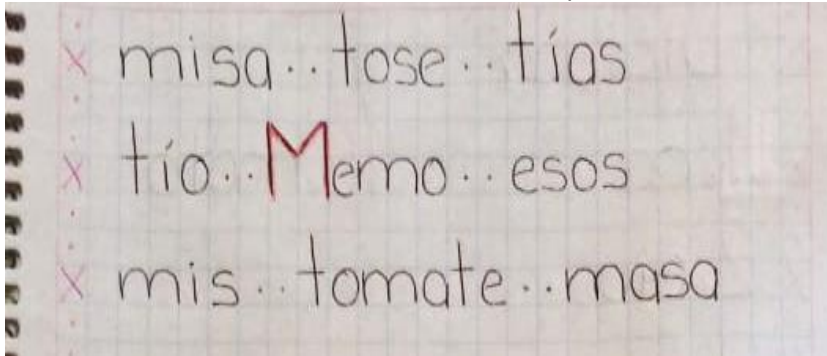 x misa..tose..tías
x tío..Memo..esos
x mis..tomate..masa